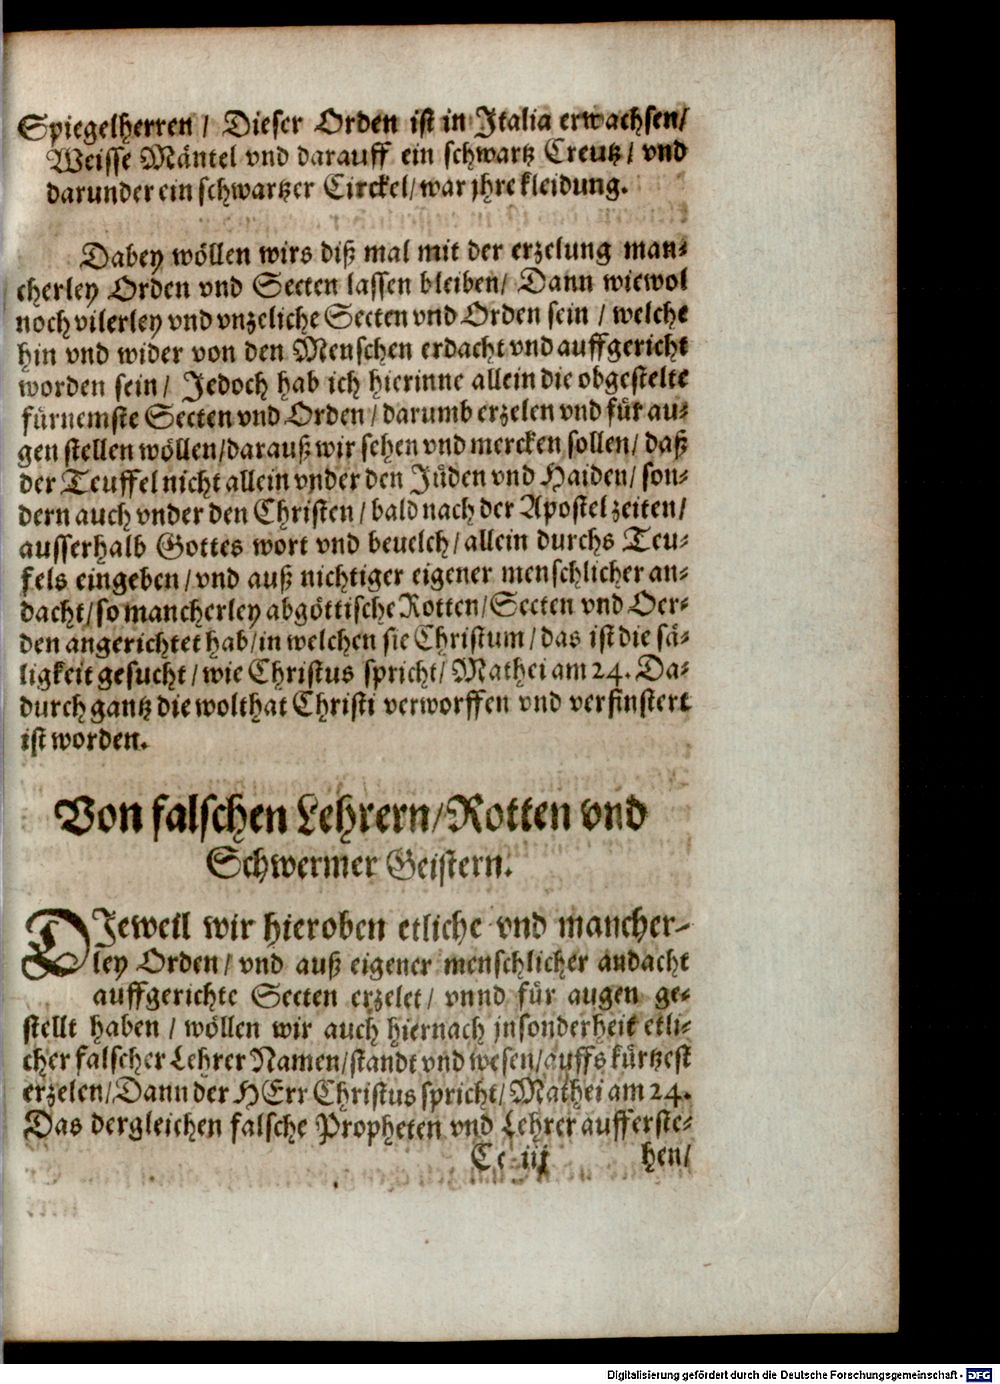 Spiegelherren / Dieser Orden ist in Italia erwachsen/
Weisse Mäntel vnd darauff ein schwartz Creutz / vnd
darunder ein schwartzer Circkel/ war jhre kleidung.
Dabey wöllen wirs diß mal mit der erzelung man-
cherley Orden vnd Secten lassen bleiben/ Dann wiewol
noch vilerley vnd vnzeliche Secten vnd Orden sein / welche
hin vnd wider von den Menschen erdacht vnd auffgericht
worden sein / Jedoch hab ich hierinne allein die obgestelte
fürnemste Secten vnd Orden / darumb erzelen vnd für au-
gen stellen wöllen/darauß wir sehen vnd mercken sollen/ daß
der Teuffel nicht allein vnder den Jüden vnd Haiden/ son-
dern auch vnder den Christen / bald nach der Apostel zeiten/
ausserhalb Gottes wort vnd beuelch / allein durchs Teu-
fels eingeben / vnd auß nichtiger eigener menschlicher an-
dacht/ so mancherley abgöttische Rotten/ Secten vnd Oer-
den angerichtet hab/in welchen sie Christum / das ist die sä-
ligkeit gesucht / wie Christus spricht/ Mathei am 24. Da-
durch gantz die wolthat Christi verworffen vnd verfinstert
ist worden.
Von falschen Lehrern/Rotten vnd
Schwermer Geistern.
DJeweil wir hieroben etliche vnd mancher-
ley Orden/ vnd auß eigener menschlicher andacht
auffgerichte Secten erzelet/ vnnd für augen ge-
stellt haben / wöllen wir auch hiernach jnsonderheit etli-
cher falscher Lehrer Namen/standt vnd wesen/auffs kürtzest
erzelen/Dann der HErr Christus spricht/ Mathei am 24.
Das dergleichen falsche Propheten vnd Lehrer aufferste-
Ce iij hen/
Digitalisierung gefördert durch die Deutsche Forschungsgemeinschaft - DFG